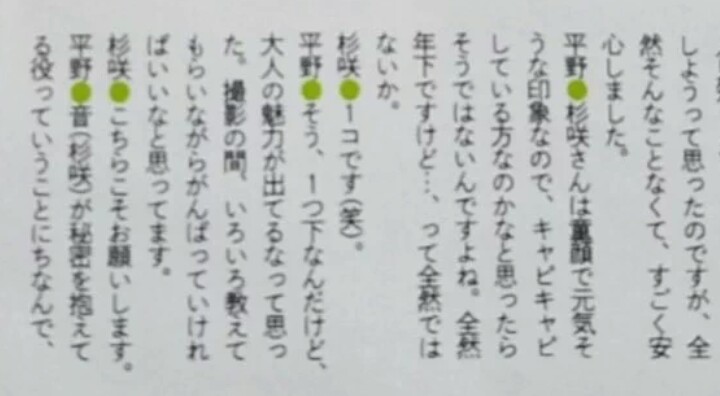 しようって思ったのですが、全
然そんなことなくて、すごく安
心しました。
平野●杉咲さんは童顔で元気そ
うな印象なので、キャピキャピ
している方なのかなと思ったら
そうではないんですよね。全然
年下ですけど…、って全然では
ないか。
杉咲●1コです(笑)。
平野●そう、1つ下なんだけど、
大人の魅力が出てるなって思っ
た。撮影の間、いろいろ教えて
もらいながらがんばっていけれ
ばいいなと思ってます。
杉咲●こちらこそお願いします。
平野●音(杉咲)が秘密を抱えて
る役っていうことにちなんで、